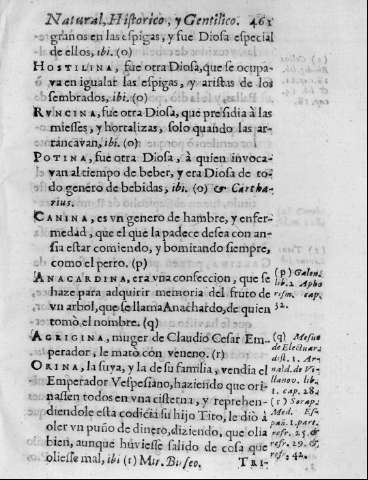 Natural, Historico, y Gentilico. 461
granos en las espigas, y fue Diosa especial
de ellos, ibi. (o)
HOSTILINA, fue otra Diosa, que se ocupa-
va en igualar las espigas, y aristas de los
sembrados, ibi. (o)
RUNCINA, fue otra Diosa, que presidia à las
miesses, y hortalizas, solo quando las ar-
rancavan, ibi. (o)
POTINA, fue otra Diosa, à quien invoca-
van al tiempo de beber, y era Diosa de to-
do genero de bebidas, ibi. (o) & Cartha-
rius.
CANINA, es vn genero de hambre, y enfer-
medad, que el que la padece desea con an-
sia estar comiendo, y bomitando siempre,
como el perro. (p)
ANACARDINA, era vna confeccion, que se
haze para adquirir memoria del fruto de
vn arbol, que se llama Anachardo, de quien
tomò el nombre. (q)
AGRIGINA, muger de Claudio Cesar Em-
perador, le matò con veneno. (r)
ORINA, la suya, y la de su familia, vendia el
Emperador Vespesiano, haziendo que ori-
nassen todos en vna cisterna, y reprehen-
diendole esta codicia su hijo Tito, le diò à
oler vn puño de dinero, diziendo, que olia
bien, aunque huviesse salido de cosa que
oliesse mal, ibi (r) Mis. Buseo.
TRI-
(p) Galeni
lib. 2 Apho
rism. cap.
32.
(q) Mesue
de Electuar.
dist. 1. Ar-
nald. de Vi-
llanov. lib.
1. cap. 284
(r) Sorap.
Med. Es-
pañ. 1. part.
refr. 25 &
refr. 29. &
refr. 42.